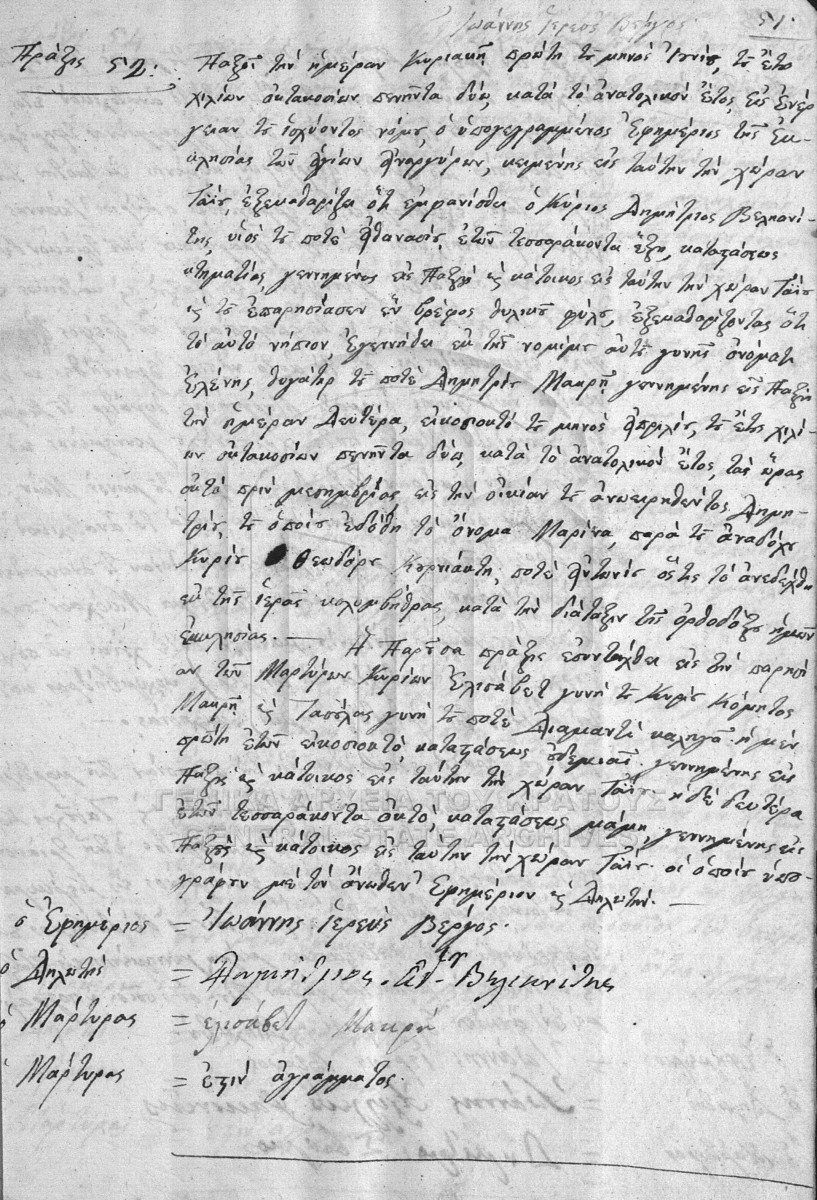 Ἰωάννης ἱερεὺς Βέργος. 51.
Πρᾶξις 52: Παξοῖ τὴν ἡμέραν Κυριακῇ πρώτη τοῦ μηνὸς Ἰουνίου, τοῦ ἔτους
χιλίων ὀκτακοσίων πενῆντα δύω, κατὰ τὸ ἀνατολικὸν ἔτος, εἰς ἐνέρ
γειαν τοῦ ἰσχύοντος νόμου, ὁ ὑπογεγραμμένος Ἐφημέριος τῆς Ἐκ-
κλησίας τῶν Ἁγίων Ἀναργύρων, κειμένης εἰς ταύτην τὴν χώραν
Γαΐου, ἐξεκαθαρίζει ὅτι ἐμφανίσθει ὁ Κύριος Δημήτριος Βελιανί-
της, υἱὸς τοῦ ποτὲ Ἀθανασίου, ἐτῶν τεσσαράκοντα ἕξη, καταστάσεως
κτηματίας, γεννημένος εἰς Παξοὺς καὶ κάτοικος εἰς ταύτην τὴν χώραν Γαΐου
καὶ τοῦ ἐπαρησίασεν ἕν βρέφος θυλικοῦ φύλου, ἐξεκαθαρίζοντας ὅτι
τὸ αὐτὸ νήπιον, ἐγεννήθει ἐκ τῆς νομίμου αὐτοῦ γυνῆς ὀνόματι
Ἑλένης, θυγάτηρ τοῦ ποτὲ Δημητρίου Μακρῆ, γεννημένης εἰς Παξοὺς
τὴν ἡμέραν Δευτέρα, εἰκοσιοκτὸ τοῦ μηνὸς Ἀπριλίου, τοῦ ἔτους χιλί-
ων ὀκτακοσίων πενῆντα δύω, κατὰ τὸ ἀνατολικὸν ἔτος, τὰς ὥρας
ὀκτὸ πρὶν μεσημβρίας εἰς τὴν οἰκίαν τοῦ ἀνωειρηθέντος Δημη-
τρίου, τοῦ ὁποίου ἐδόθη τὸ ὄνομα Μαρίνα, παρὰ τοῦ ἀναδόχου
Κυρίου Θεωδόρου Κορνιάκτη, ποτὲ Ἀντωνίου ὅστις τὸ ἀνεδέχθη
ἐκ τῆς ἱερᾶς κολομβήθρας, κατὰ τὴν διάταξιν τῆς ὀρθοδόξου ἡμῶν
ἐκκλησίας. — Ἡ Παροῦσα πρᾶξις ἐσυντάχθει εἰς τὴν παρησί
αν τῶν Μαρτύρων Κυρίων Ἐλισάβετ γυνὴ τοῦ Κυρίου Κόμητος
Μακρῆ, καὶ Τασούλας γυνὴ τοῦ ποτὲ Διαμαντὶ καληγᾶ. ἡ μὲν
πρώτη ἐτῶν εἰκοσιοκτὸ καταστάσεως οὐδεμιᾶς γεννημένης εἰς
Παξοὺς καὶ κάτοικος εἰς ταύτην τὴν χώραν Γαΐου. ἡ δὲ δευτέρα
ἐτῶν τεσσαράκοντα ὀκτὸ, καταστάσεως μάμη, γεννημένης εἰς
Παξοὺς καὶ κάτοικος εἰς ταύτην τὴν χώραν Γαΐου. οἱ ὁποῖοι ὑπο-
γράφουν μὲ τὸν ἄνωθεν Ἐφημέριον καὶ Δηλωτήν. —
ὁ Ἐφημέριος = Ἰωάννης ἱερεὺς Βέργος.
ὁ Δηλωτής = Δημήτριος Βελιανίτης
ὁ Μάρτυρας = ἐλισάβετ Μακρῆ
ὁ Μάρτυρας = ἐστὶν ἀγράμματος.
ΓΕΝΙΚΑ ΑΡΧΕΙΑ ΤΟΥ ΚΡΑΤΟΥΣ
GENERAL STATE ARCHIVES